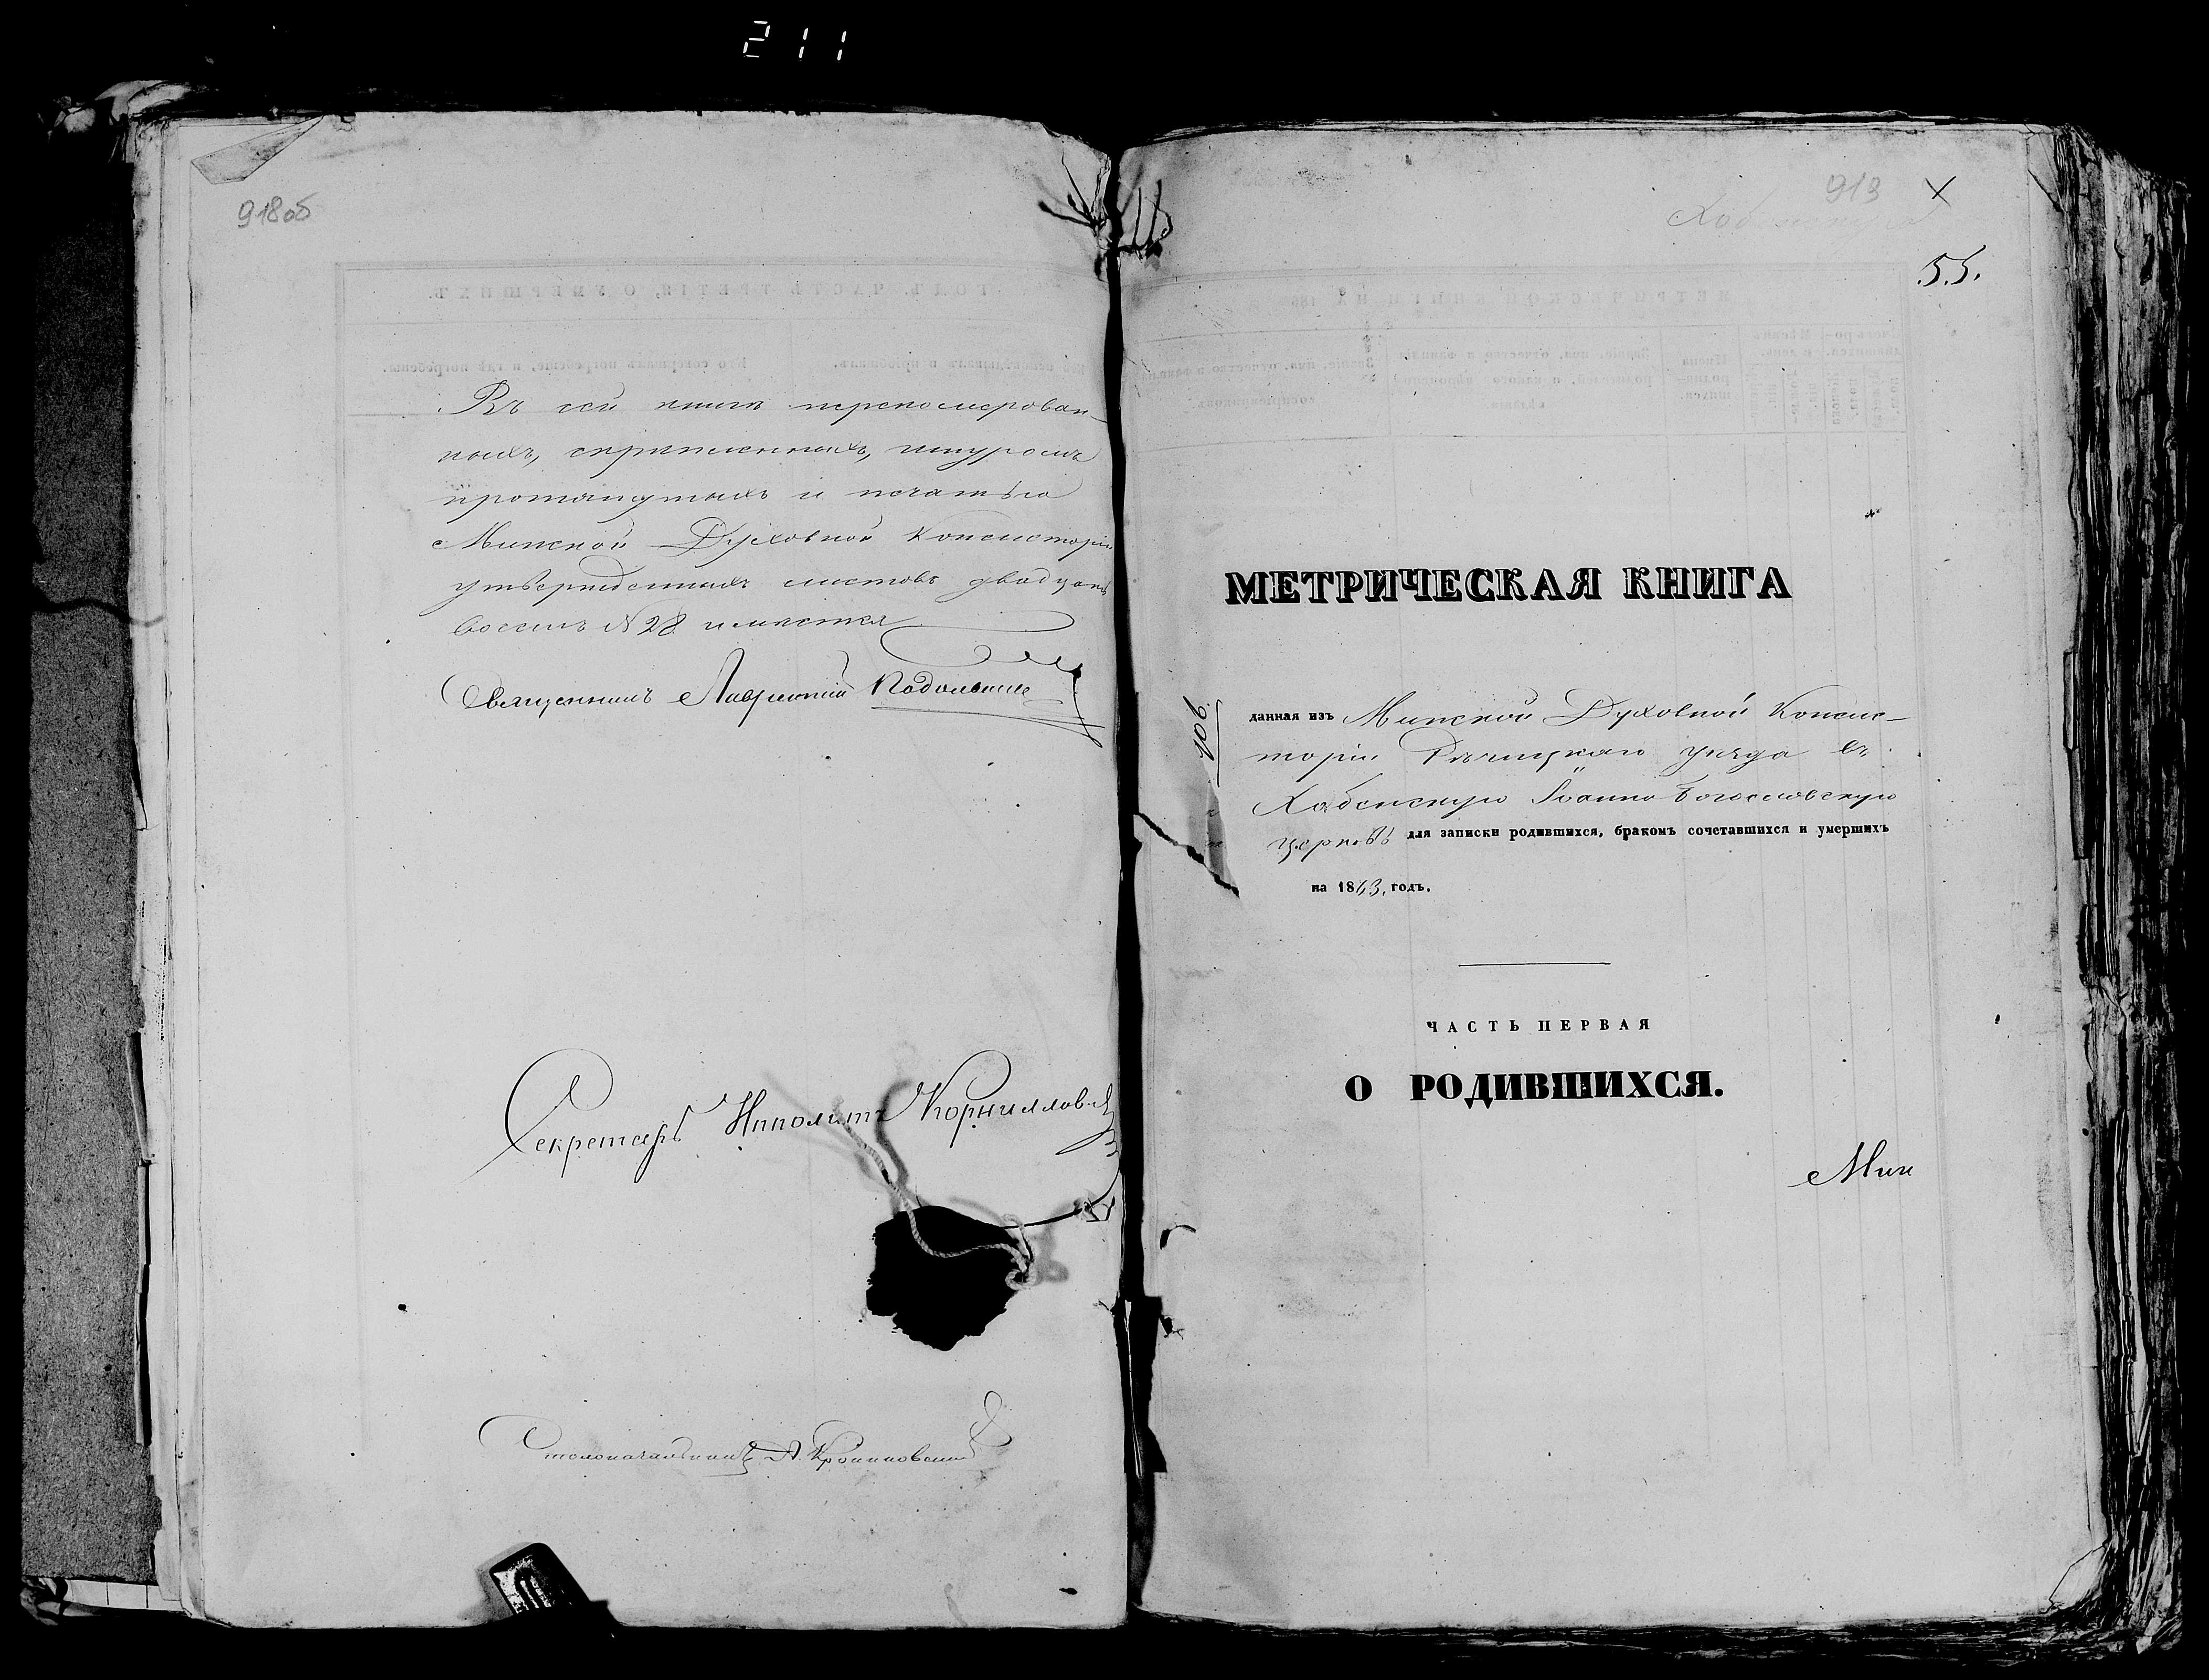 211
918 об
Въ сей книгѣ переномерован-
ныхъ, скрѣпленныхъ, шнуромъ
протянутыхъ и печатью
Минской Духовной Консисторіи
утвержденныхъ листовъ двадцать
восемь № 28 имѣется
Священникъ Лаврентій
Секретарь Ипполитъ Корнилловичъ
Столоначальникъ А.
919 X
55.
МЕТРИЧЕСКАЯ КНИГА
данная изъ Минской Духовной Консис-
торіи Рѣчицкаго уѣзда въ
Хабенскую Іоанно-Богословскую
церковь для записки родившихся, бракомъ сочетавшихся и умершихъ
на 1863. годъ.
ЧАСТЬ ПЕРВАЯ
О РОДИВШИХСЯ.
Мин